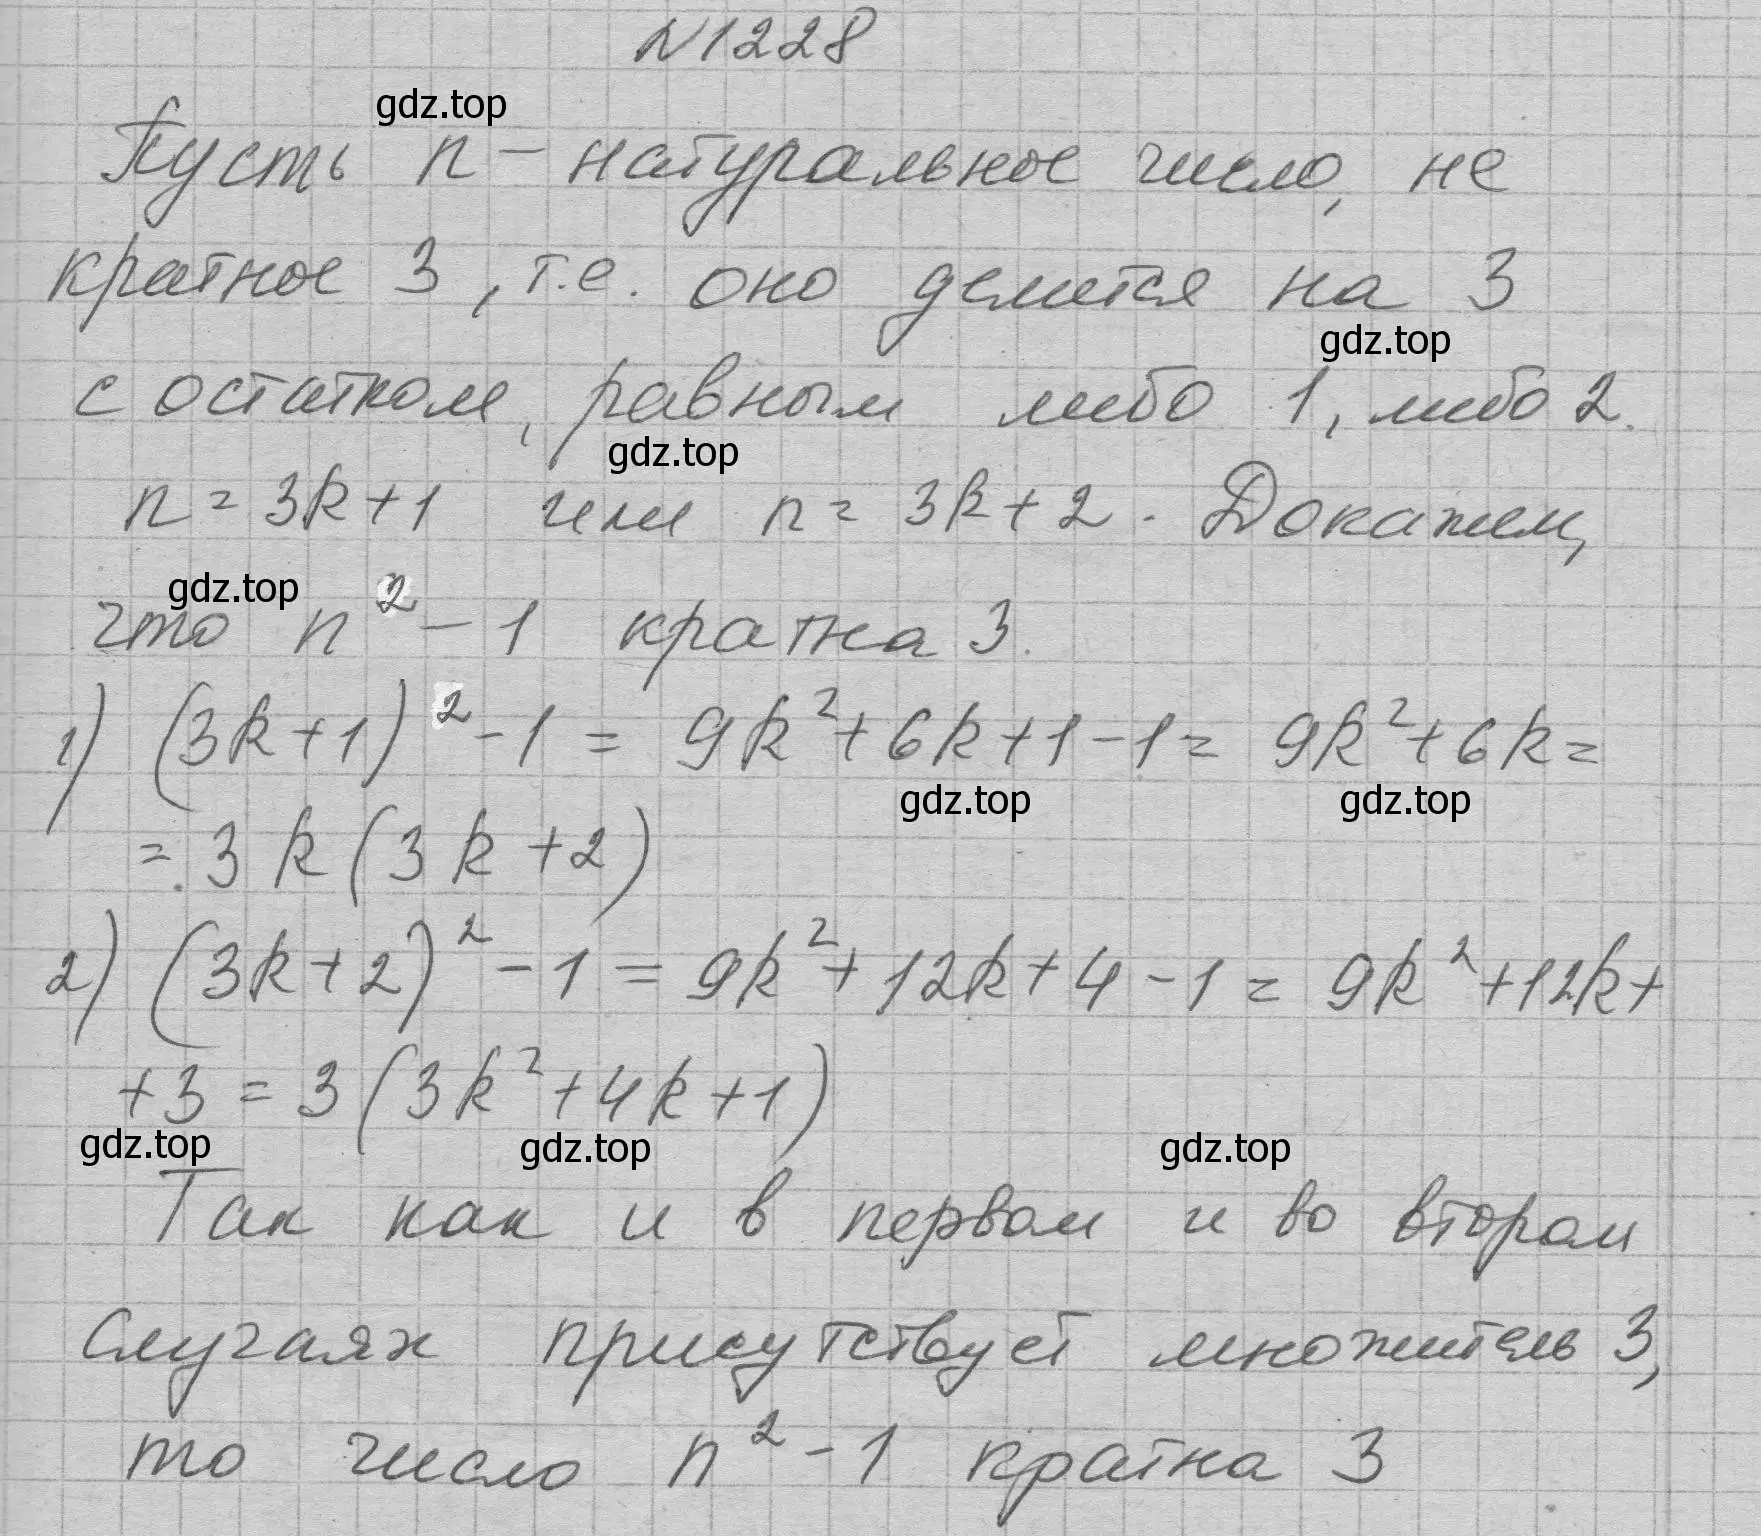 N1228
gdz.top
Пусть n - натуральное число, не
кратное 3, т.е. оно делится на 3
gdz.top
с остатком, равным либо 1, либо 2.
gdz.top
n = 3k+1 или n = 3k+2. Докажем,
gdz.top
что n² - 1 кратна 3.
1) (3k+1)² - 1 = 9k² + 6k + 1 - 1 = 9k² + 6k =
gdz.top gdz.top
= 3k(3k+2)
2) (3k+2)² - 1 = 9k² + 12k + 4 - 1 = 9k² + 12k +
+ 3 = 3(3k² + 4k + 1)
gdz.top gdz.top gdz.top
Так как и в первом и во втором
случаях присутствует множитель 3,
то число n² - 1 кратна 3